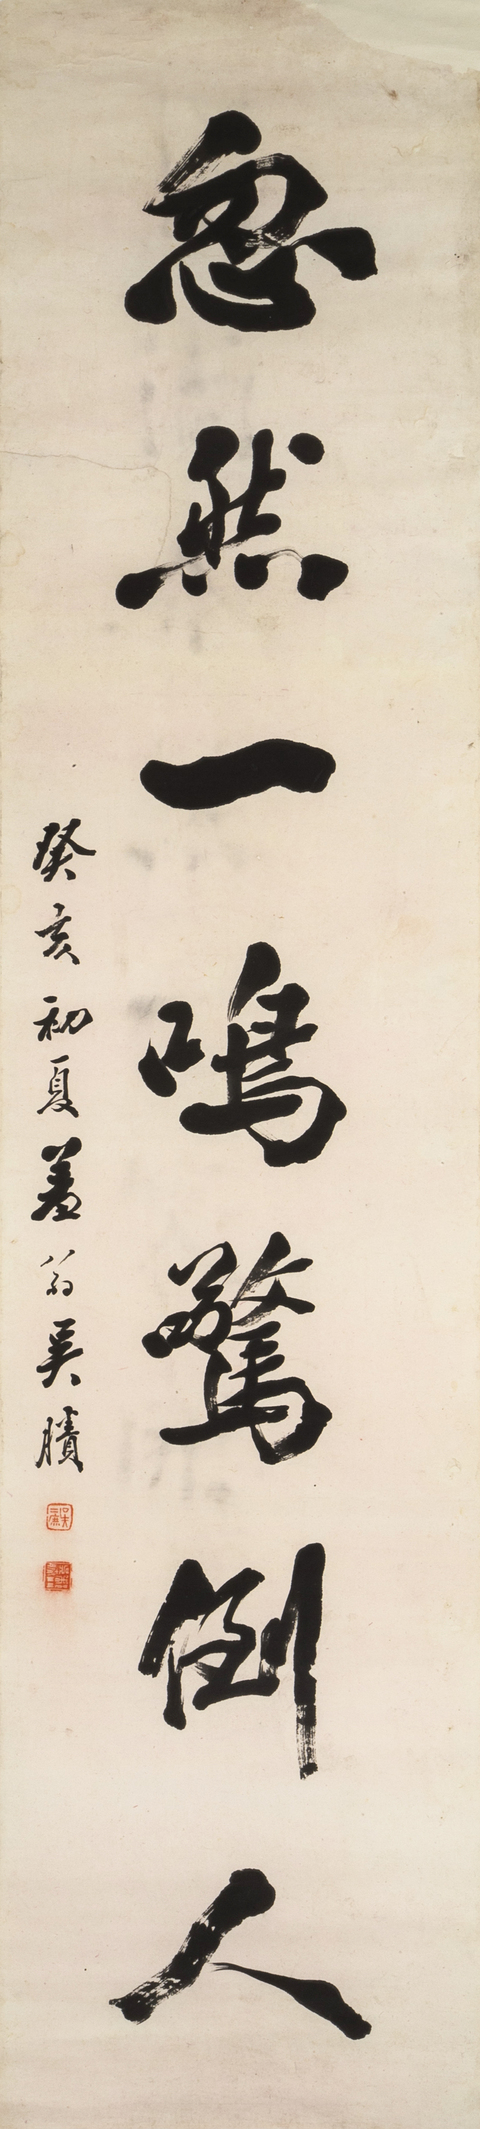 忽然一鳴驚倒人
癸亥初夏羞翁吳